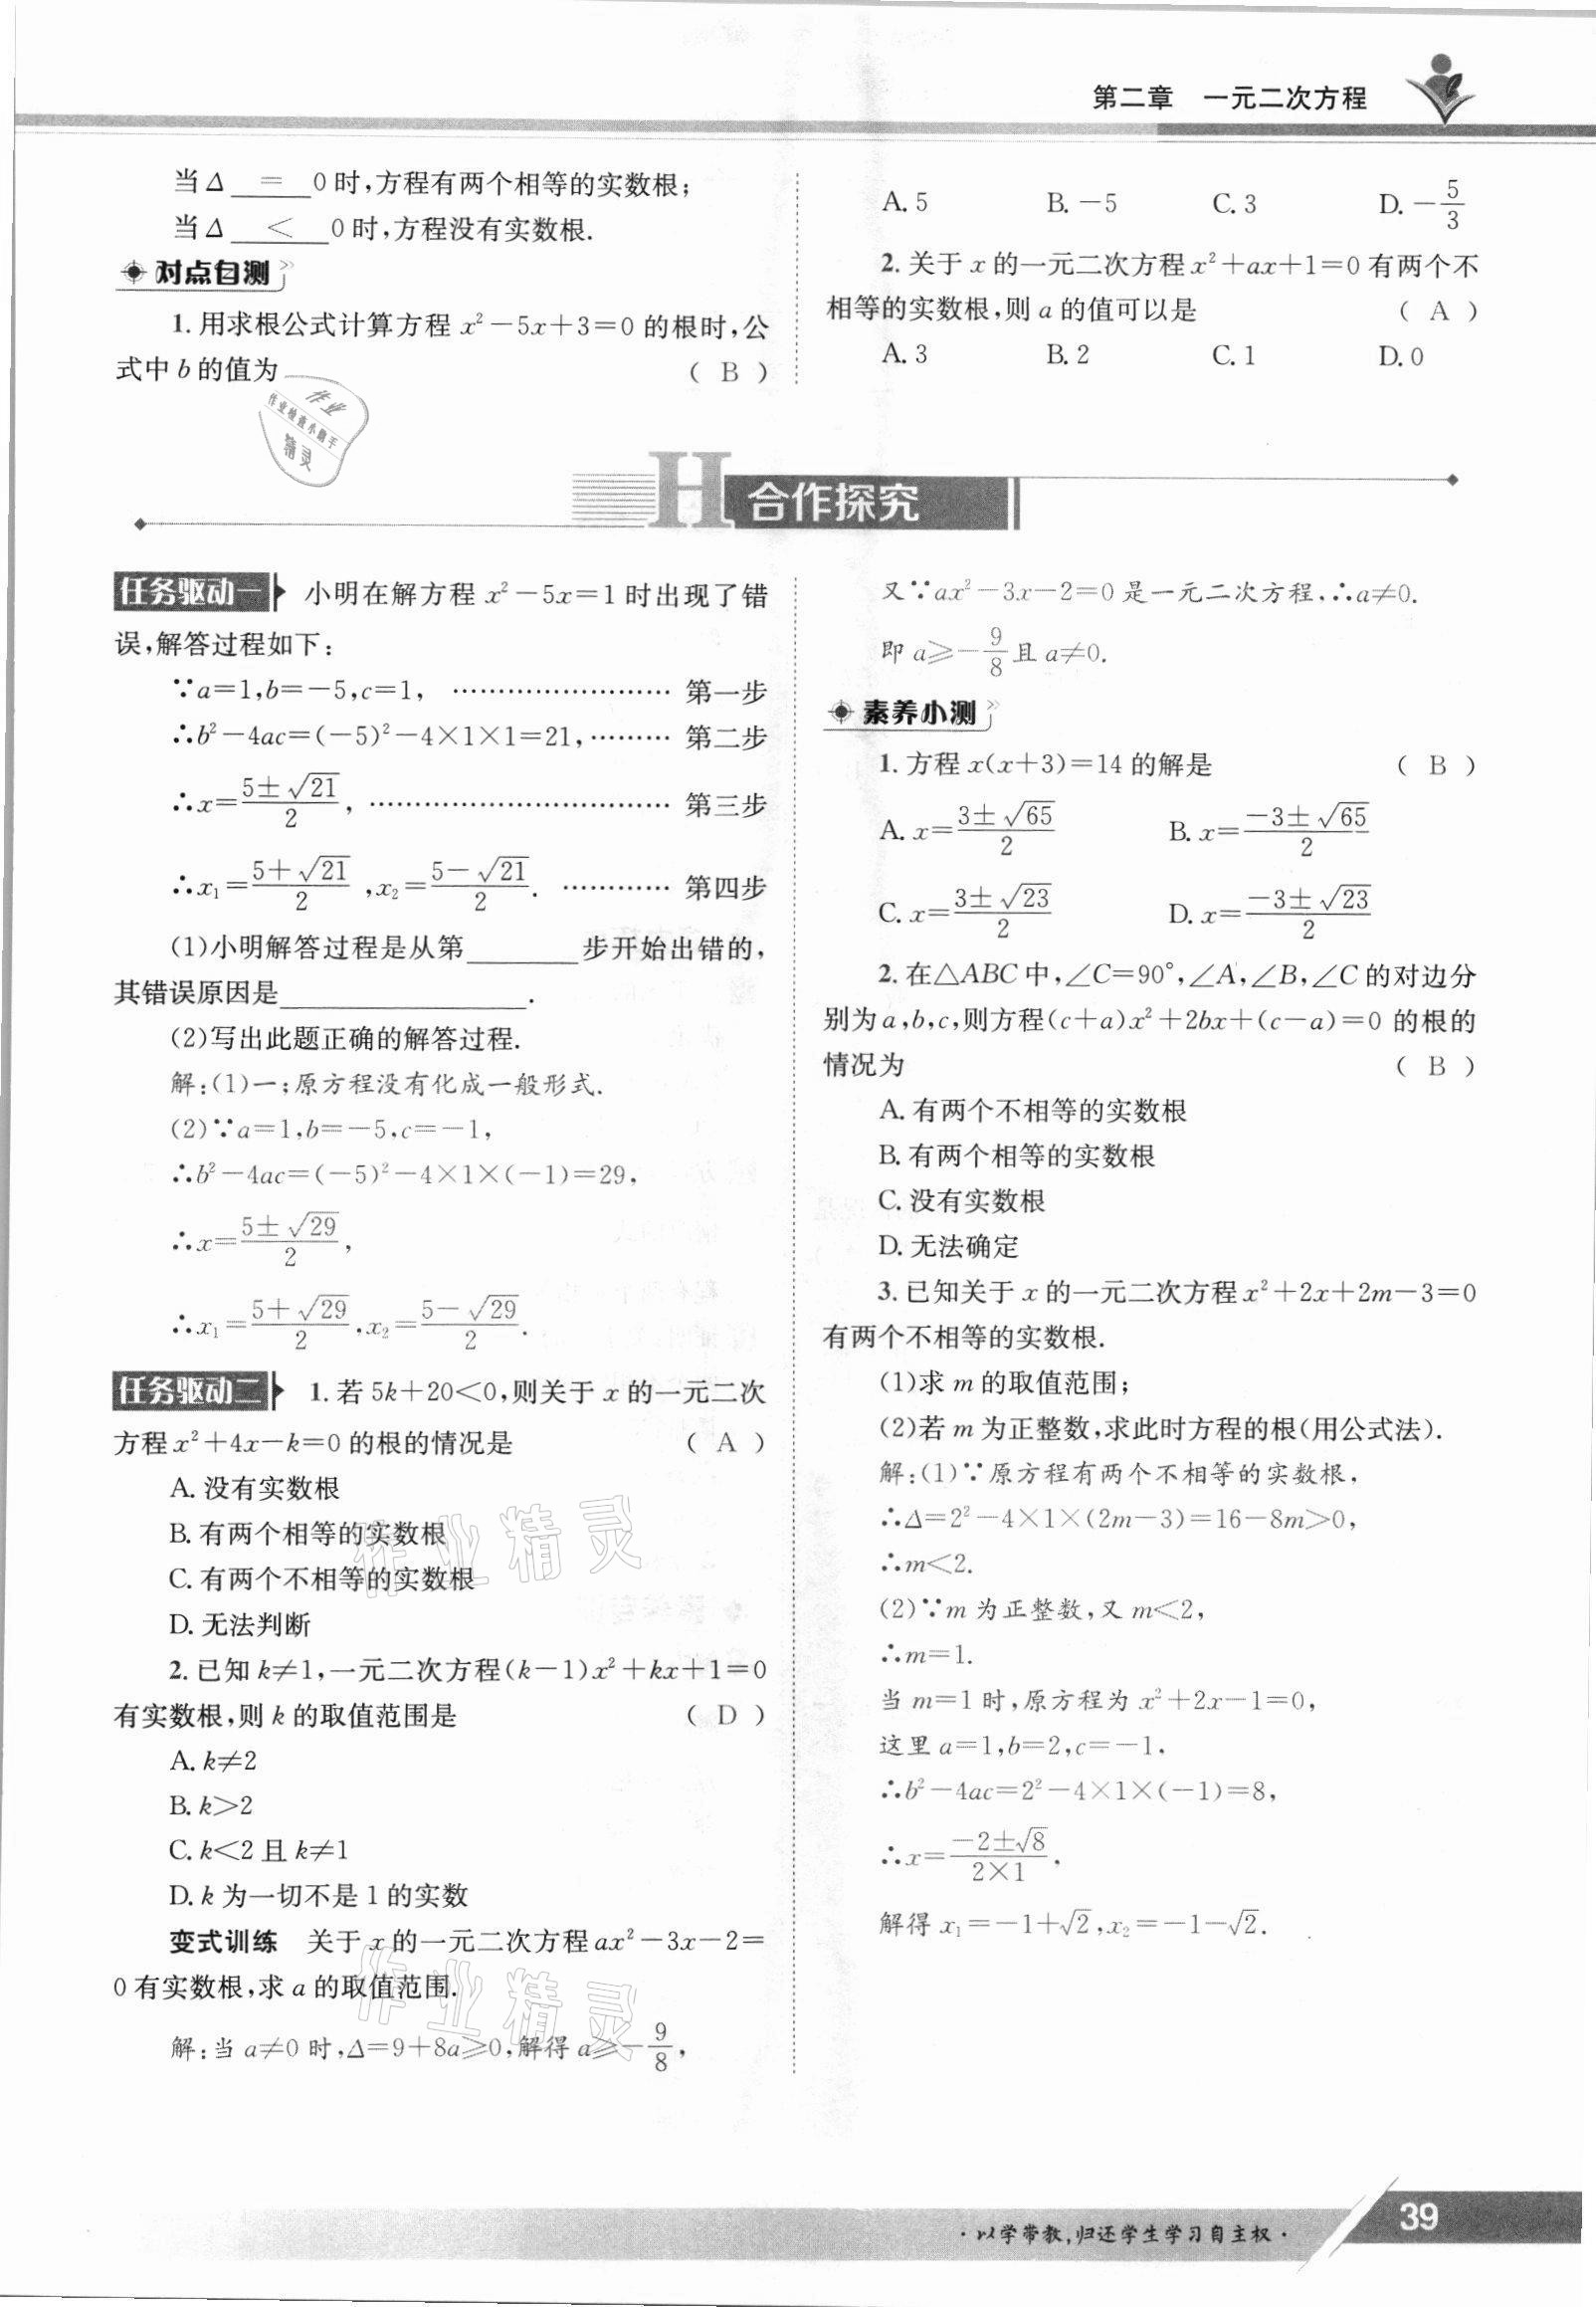 第二章 一元二次方程
当 Δ = 0 时,方程有两个相等的实数根;
当 Δ < 0 时,方程没有实数根.
对点自测
1. 用求根公式计算方程 x²-5x+3=0 的根时,公
式中 b 的值为 ( B )
A. 5 B. -5 C. 3 D. -5/3
2. 关于 x 的一元二次方程 x²+ax+1=0 有两个不
相等的实数根,则 a 的值可以是 ( A )
A. 3 B. 2 C. 1 D. 0
作业
作业检查小助手
精灵
H 合作探究
任务驱动一 小明在解方程 x²-5x=1 时出现了错
误,解答过程如下:
∵a=1,b=-5,c=1, …………………… 第一步
∴b²-4ac=(-5)²-4×1×1=21,……… 第二步
∴x=(5±√21)/2, …………………………… 第三步
∴x₁=(5+√21)/2,x₂=(5-√21)/2. ………… 第四步
(1)小明解答过程是从第________步开始出错的,
其错误原因是__________________.
(2)写出此题正确的解答过程.
解:(1)一;原方程没有化成一般形式.
(2)∵a=1,b=-5,c=-1,
∴b²-4ac=(-5)²-4×1×(-1)=29,
∴x=(5±√29)/2,
∴x₁=(5+√29)/2,x₂=(5-√29)/2.
任务驱动二 1. 若 5k+20<0,则关于 x 的一元二次
方程 x²+4x-k=0 的根的情况是 ( A )
A. 没有实数根
B. 有两个相等的实数根
C. 有两个不相等的实数根
D. 无法判断
作业精灵
2. 已知 k≠1,一元二次方程(k-1)x²+kx+1=0
有实数根,则 k 的取值范围是 ( D )
A. k≠2
B. k>2
C. k<2 且 k≠1
D. k 为一切不是 1 的实数
变式训练 关于 x 的一元二次方程 ax²-3x-2=
0 有实数根,求 a 的取值范围.
作业精灵
解:当 a≠0 时,Δ=9+8a≥0,解得 a≥-9/8,
又∵ax²-3x-2=0 是一元二次方程,∴a≠0.
即 a≥-9/8 且 a≠0.
素养小测
1. 方程 x(x+3)=14 的解是 ( B )
A. x=(3±√65)/2 B. x=(-3±√65)/2
C. x=(3±√23)/2 D. x=(-3±√23)/2
2. 在△ABC 中,∠C=90°,∠A,∠B,∠C 的对边分
别为 a,b,c,则方程(c+a)x²+2bx+(c-a)=0 的根的
情况为 ( B )
A. 有两个不相等的实数根
B. 有两个相等的实数根
C. 没有实数根
D. 无法确定
3. 已知关于 x 的一元二次方程 x²+2x+2m-3=0
有两个不相等的实数根.
(1)求 m 的取值范围;
(2)若 m 为正整数,求此时方程的根(用公式法).
解:(1)∵原方程有两个不相等的实数根,
∴Δ=2²-4×1×(2m-3)=16-8m>0,
∴m<2.
(2)∵m 为正整数,又 m<2,
∴m=1.
当 m=1 时,原方程为 x²+2x-1=0,
这里 a=1,b=2,c=-1,
∴b²-4ac=2²-4×1×(-1)=8,
∴x=(-2±√8)/(2×1).
解得 x₁=-1+√2,x₂=-1-√2.
·以学带教,归还学生学习自主权·
39